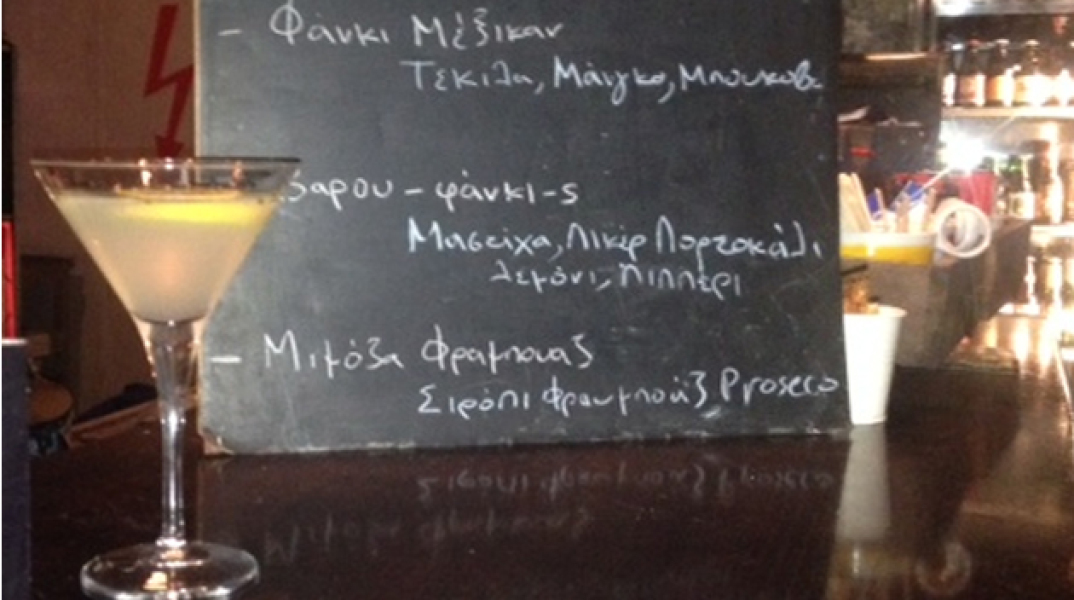 - Φάνκι Μέξικαν
Τεκίλα, Μάνγκο, Μπουκοβο
- φάνκι - s
Μαστίχα, Λικέρ Πορτοκάλι
Λεμόνι, Πιππέρι
- Μιμόζα Φραμπουαζ
Σιρόπι Φραμπουάζ Proseco